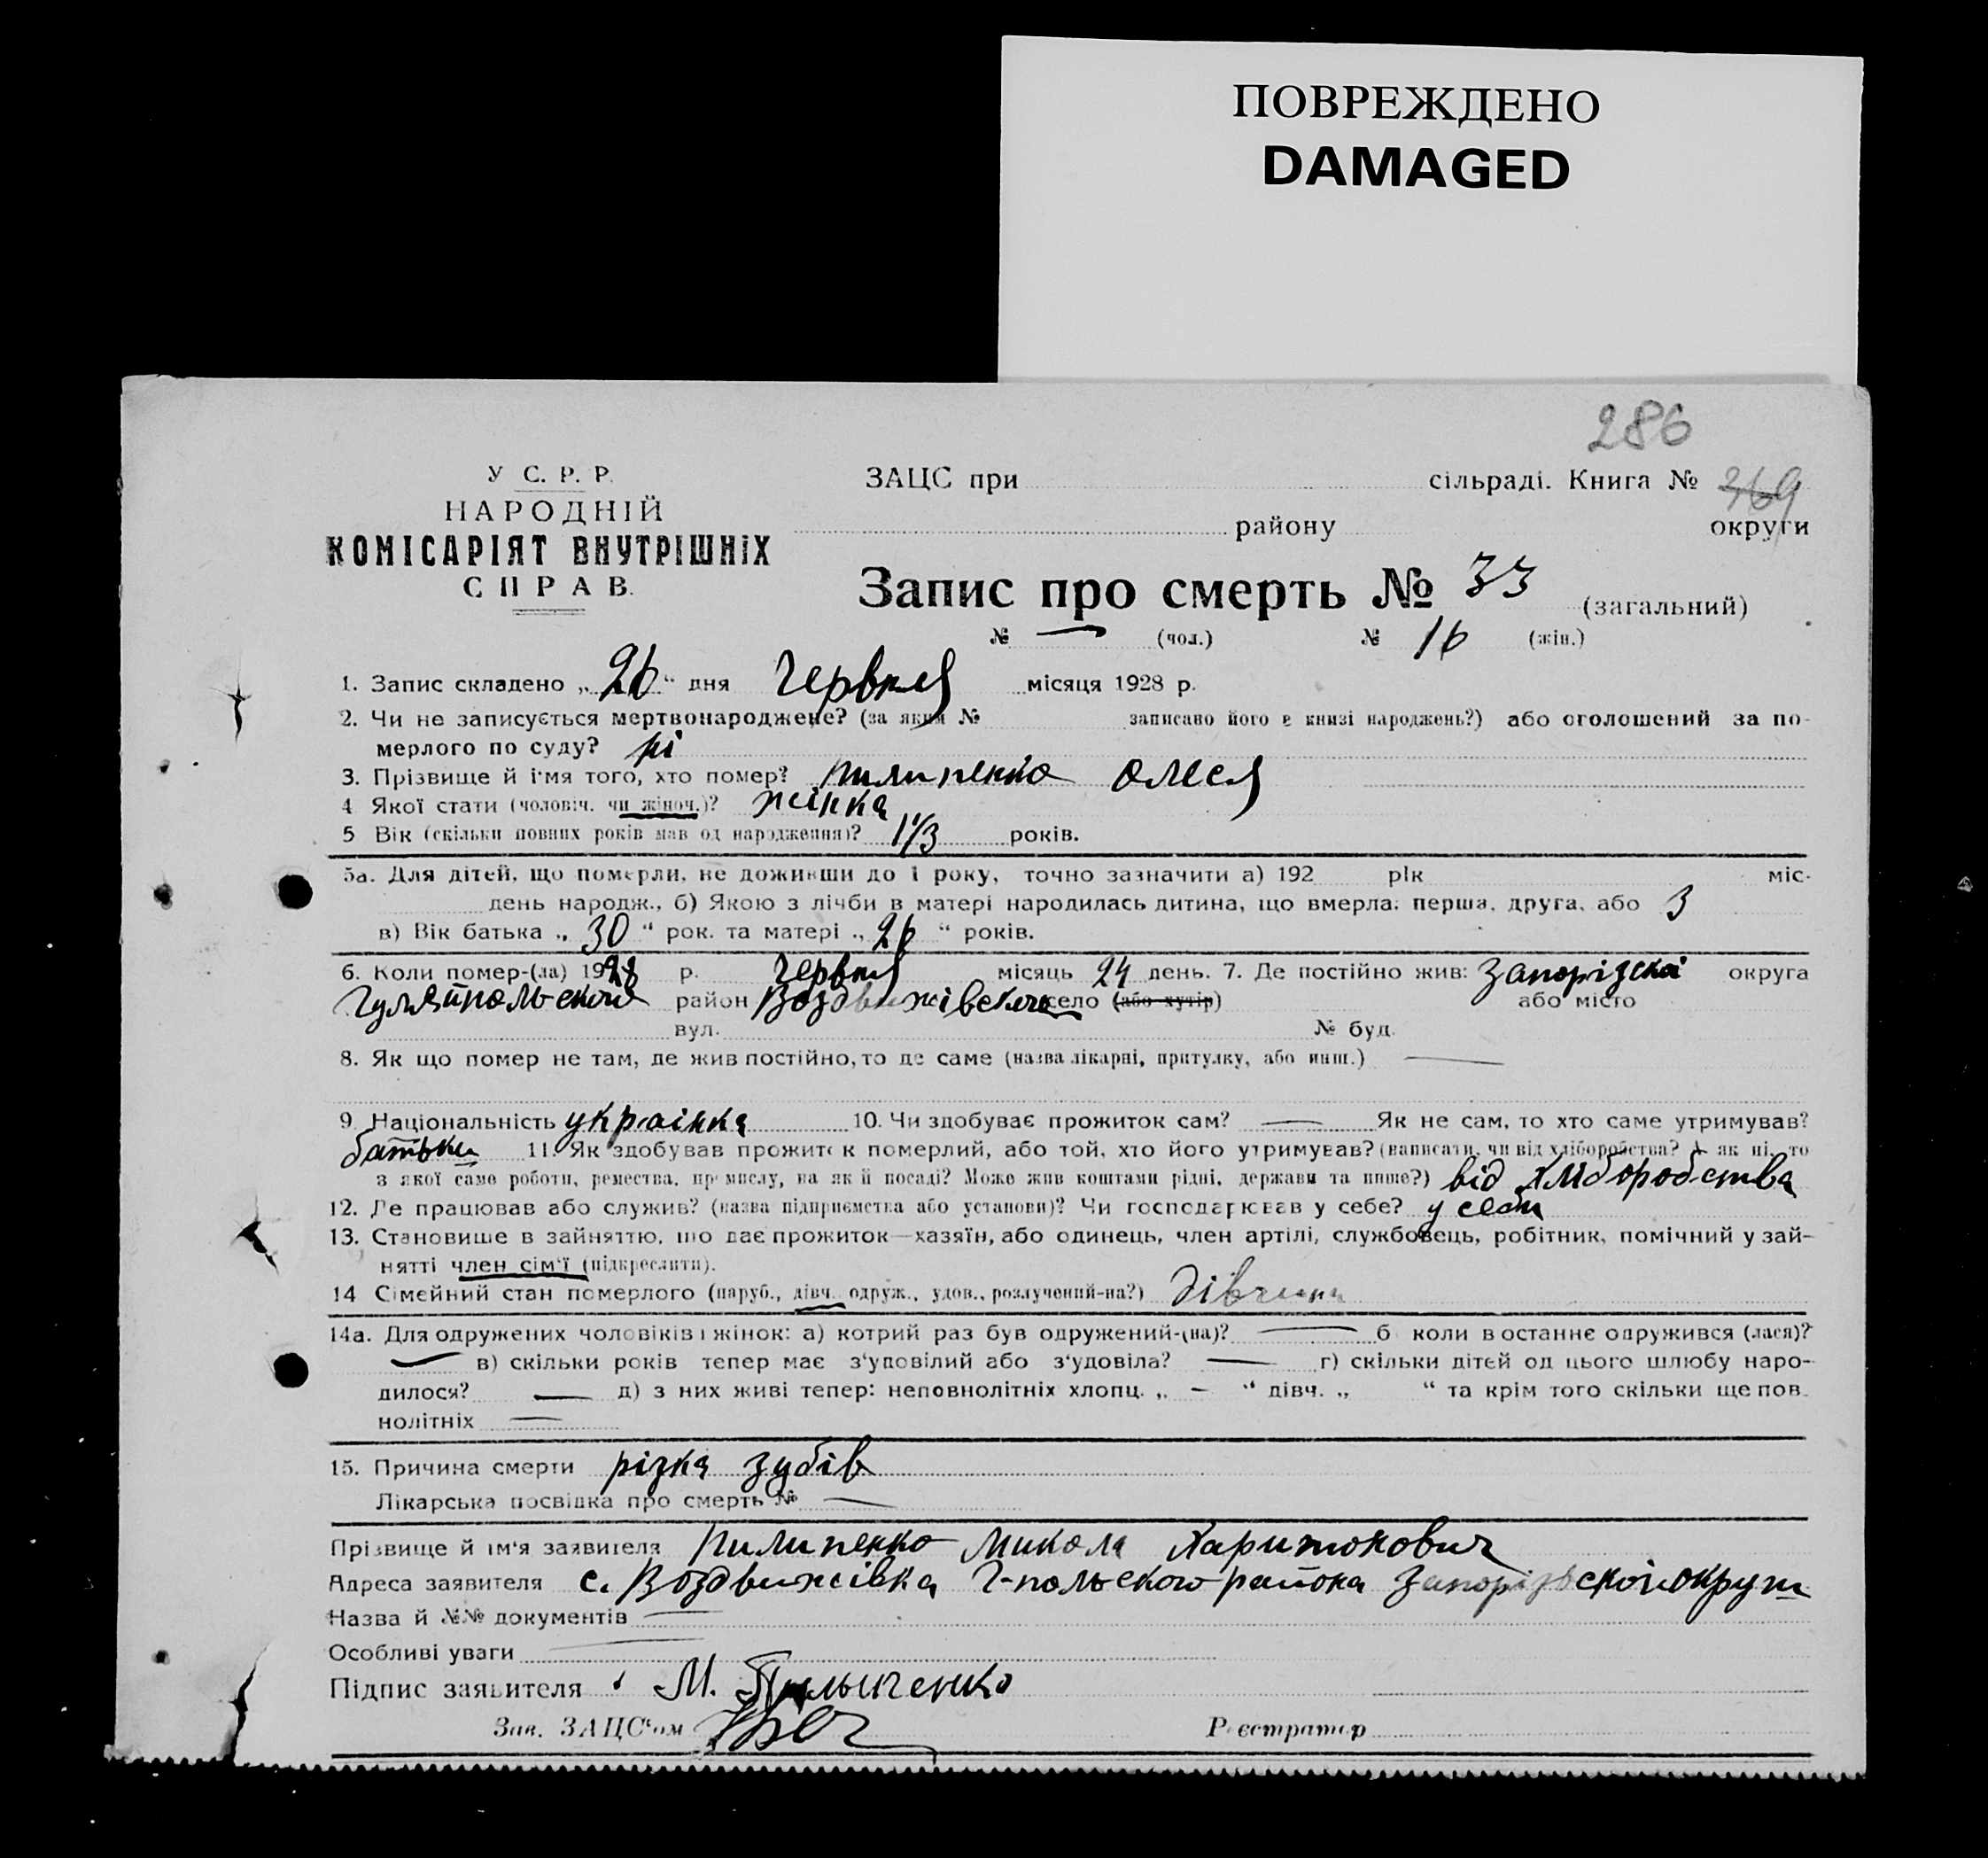 ПОВРЕЖДЕНО
DAMAGED
286
У С. Р. Р.
НАРОДНІЙ
КОМІСАРІЯТ ВНУТРІШНІХ
СПРАВ.
ЗАЦС при сільраді. Книга № 369
району округи
Запис про смерть № 33 (загальний)
№ — (чол.) № 16 (жін.)
1. Запис складено „ 26 “ дня червня місяця 1928 р.
2. Чи не записується мертвонароджене? (за яким № записано його в книзі народжень?) або оголошений за по-
мерлого по суду? ні
3. Прізвище й ім'я того, хто помер? Пилипенко Олеся
4 Якої стати (чоловіч. чи жіноч.)? жінка
5 Вік (скільки повних років мав од народження)? 1 1/3 років.
5а. Для дітей, що померли, не доживши до 1 року, точно зазначити а) 192 рік міс.
день народж., б) Якою з лічби в матері народилась дитина, що вмерла: перша, друга, або 3
в) Вік батька „ 30 “ рок. та матері „ 26 “ років.
6. Коли помер-(ла) 1928 р. червня місяць 24 день. 7. Де постійно жив: Запорізскоі округа
Гуляйпольского район Воздвижівского село (або хутір) або місто
вул. № буд.
8. Як що помер не там, де жив постійно, то де саме (назва лікарні, притулку, або инш.) —
9. Національність украінка 10. Чи здобував прожиток сам? — Як не сам, то хто саме утримував?
батьки 11. Як здобував прожиток померлий, або той, хто його утримував? (написати, чи від хліборобства? А як ні, то
з якої саме роботи, ремества, промислу, на якій посаді? Може жив коштами рідні, держави та инше?) від хліборобства
12. Де працював або служив? (назва підприємства або установи)? Чи господарював у себе? у себе
13. Становище в зайняттю, що дає прожиток—хазяїн, або одинець, член артілі, службовець, робітник, помічний у зай-
нятті член сім'ї (підкреслити).
14 Сімейний стан померлого (паруб., дівч. одруж., удов., розлучений-на?) дівчина
14а. Для одружених чоловіків і жінок: а) котрий раз був одружений-(на)? — б коли в останнє одружився (лася)?
— в) скільки років тепер має з'удовілий або з'удовіла? — г) скільки дітей од цього шлюбу наро-
дилося? — д) з них живі тепер: неповнолітніх хлопц. „ — “ дівч. „ “ та крім того скільки ще пов.
нолітніх —
15. Причина смерти різка зубів
Лікарська посвідка про смерть № —
Прізвище й ім'я заявителя Пилипенко Микола Харитонович
Адреса заявителя с. Воздвижівка Г-польского района Запорізьскоі округи
Назва й №№ документів —
Особливі уваги —
Підпис заявителя М. Пилыпенко
Зав. ЗАЦС'ом
Реєстратор